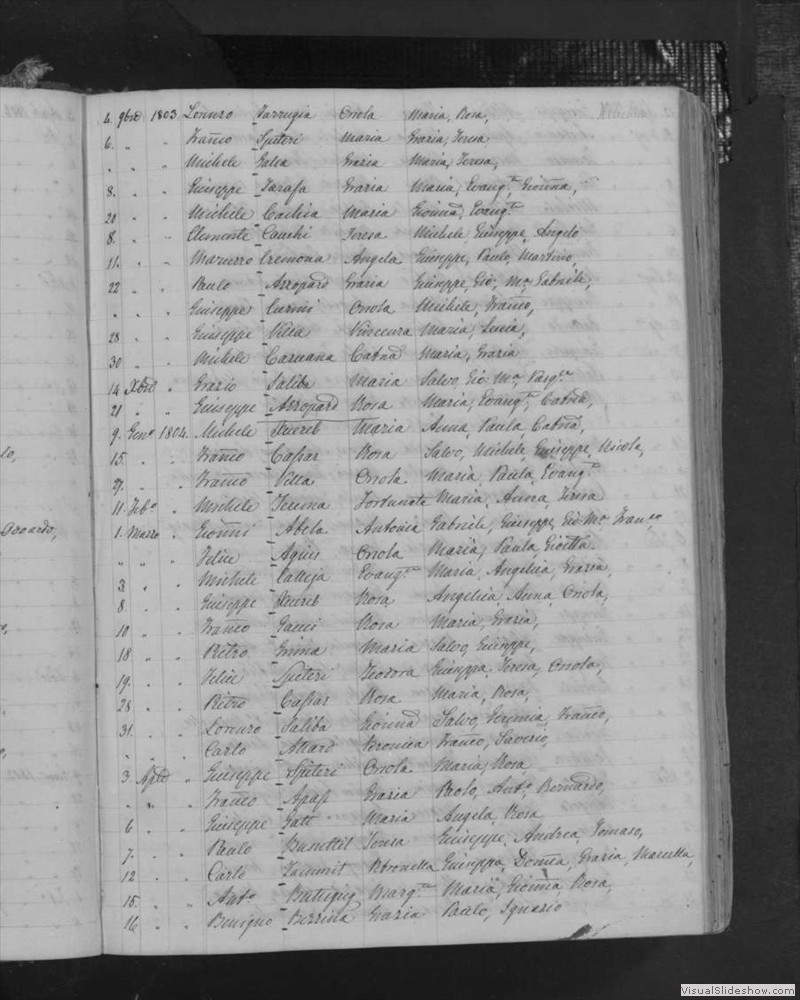 4. 9bre 1803 Lorenzo Farrugia Orsola Maria, Rosa,
6. " " Franco Spiteri Maria Grazia, Teresa
" " " Michele Galea Grazia Maria, Teresa,
8. " " Giuseppe Zarafa Grazia Maria, Evanga, Gioanna,
20 " " Michele Cachia Maria Gioanna, Evanga
8. " " Clemente Cauchi Teresa Michele, Giuseppe, Angelo
11. " " Cremona Angela Giuseppe, Paulo, Martino,
22 " " Paulo Azzopard Grazia Giuseppe, Gio: Ma, Gabriele,
" " " Giuseppe Curmi Orsola Michele, Franco,
28 " " Giuseppe Vella Maria, Lucia,
30 " " Michele Caruana Catna Maria, Grazia
14 Xbre " Grazio Saliba Maria Salvo, Gio: Ma, Pasqe
21 " " Giuseppe Azzopard Rosa Maria, Evanga, Catna,
9. Geno 1804. Michele Xuereb Maria Anna, Paula, Catna,
15. " " Franco Cassar Rosa Salvo, Michele, Giuseppe, Nicola,
27. " " Franco Vella Orsola Maria, Paula, Evanga
11. Febo " Michele Fortunata Maria, Anna, Teresa
1. Marzo " Gioanni Abela Antonia Gabriele, Giuseppe, Gio: Ma, Franco,
" " " Felice Agius Orsola Maria, Paula,
3 " " Michele Calleja Evanga Maria, Angelica, Grazia,
8. " " Giuseppe Xuereb Rosa Angelica, Anna, Orsola,
10 " " Franco Gauci Rosa Maria, Grazia,
18 " " Pietro Grima Maria Salvo, Giuseppe,
19. " " Felice Spiteri Teodora Giuseppa, Teresa, Orsola,
28 " " Pietro Cassar Rosa Maria, Rosa,
31. " " Lorenzo Saliba Gioanna Salvo, Geremia, Franco,
" " " Carlo Attard Franco, Saverio,
3 Aple " Giuseppe Spiteri Orsola Maria, Rosa
" " " Franco Apap Grazia Paolo, Anto, Bernardo,
6 " " Giuseppe Gatt Maria Angela, Rosa
7. " " Paulo Teresa Giuseppe, Andrea, Tomaso,
12 " " Carlo Zammit Petronella Giuseppa, Grazia,
15. " " Anto Buttigieg Marga Maria, Gioanna, Rosa,
16 " " Benigno Grazia Paulo, Ignazio
VisualSlideshow.com